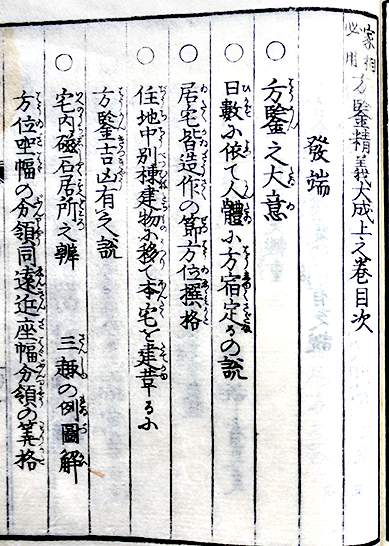 家相必用 方鑒精義大成上之巻目次
發端
○方鑒之大意
○日數に依て人體に方宿定るの説
○居宅皆造作の節方位撰格
○住地中別棟建物に移て本宅を建葺るに
方鑒吉凶有之説
○宅内磁石居所之辨 三趣の例圖解
方位座幅の分領同遠近座幅分領の筭格